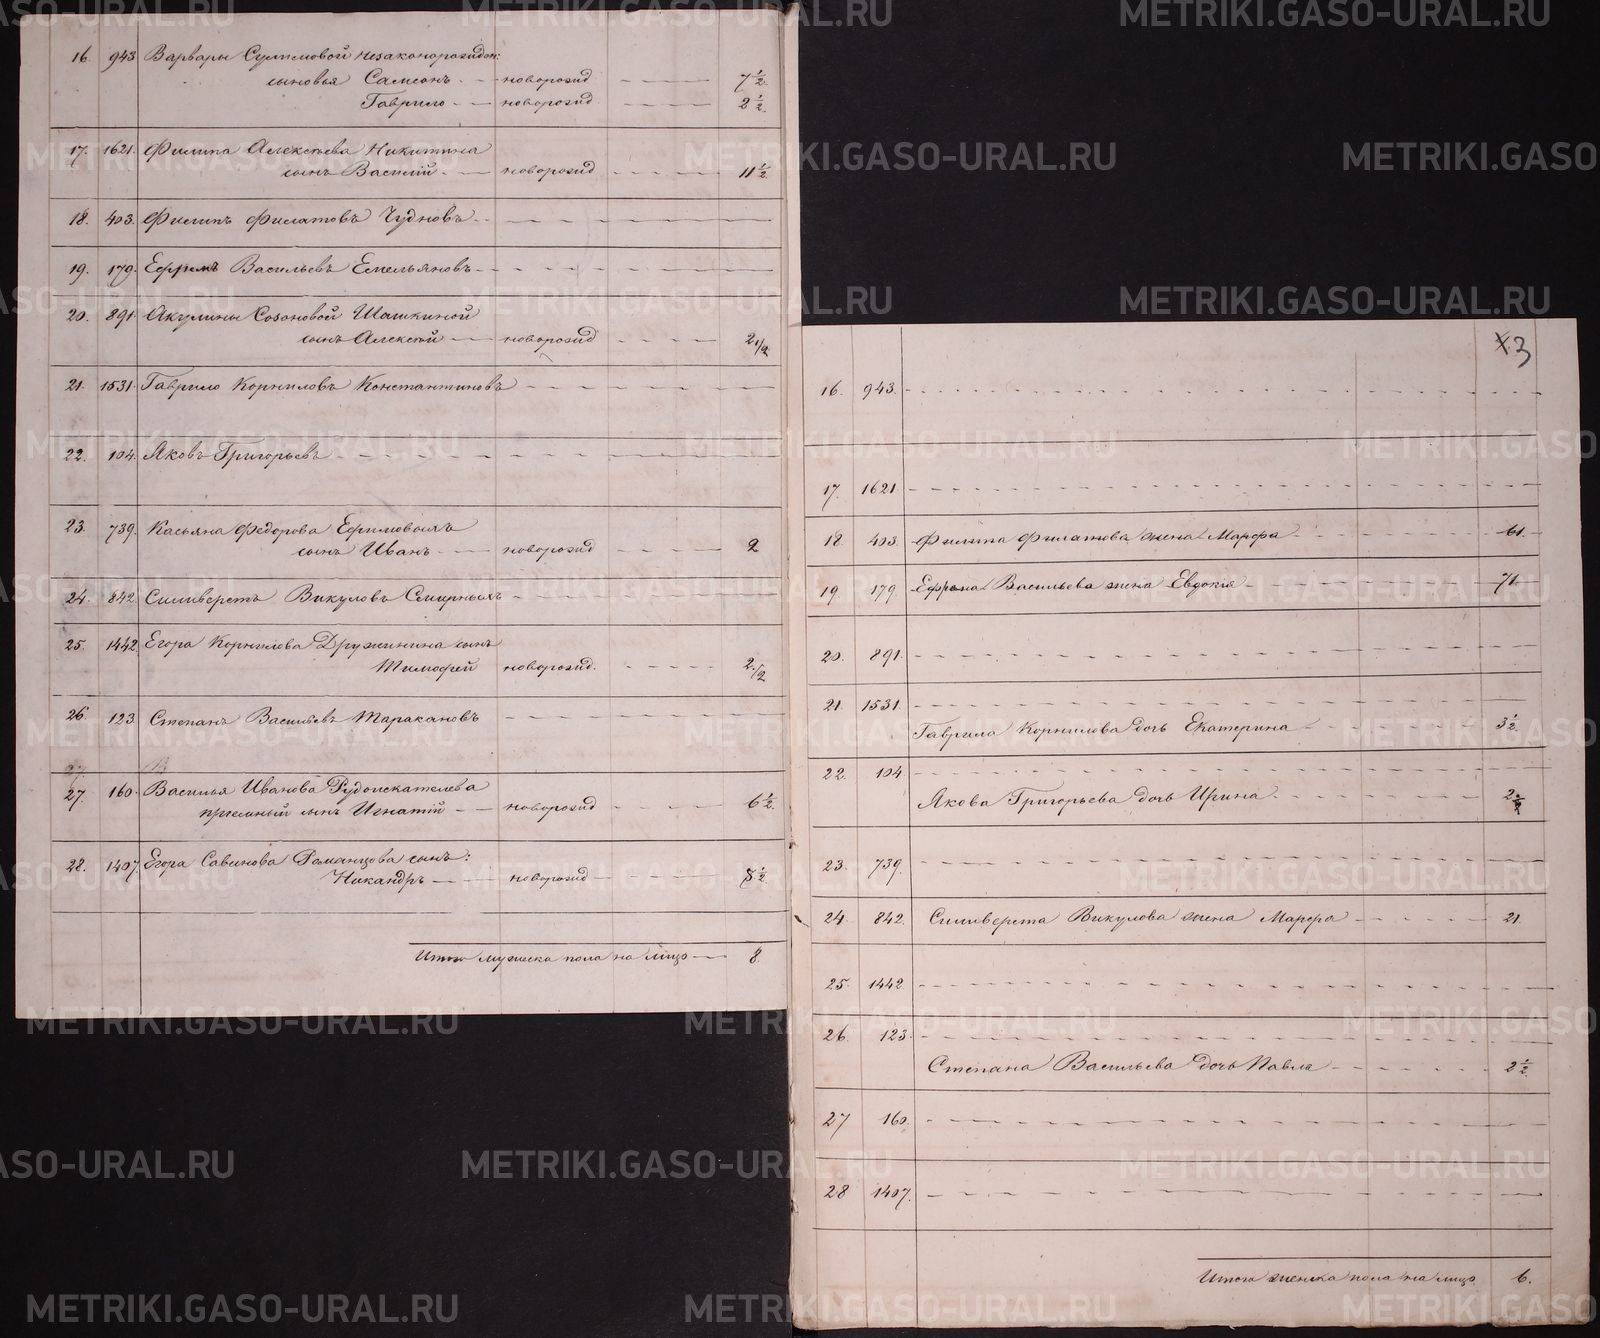 16. 943 Варвары Сулимовой незаконорожден:
сыновья Самсонъ новорожд 7 1/2
Гаврило новорожд. 2 1/2
17. 1621. Филипа Алексѣева Никитина
сынъ Василій новорожд 11 1/2
18. 403. Филипъ Филатовъ Чудновъ
19. 179. Ефримъ Васильевъ Емельяновъ
20. 891. Акулины Созоновой Шашкиной
сынъ Алексѣй новорожд 2 1/2
21. 1531. Гаврило Корниловъ Константиновъ
22. 104. Яковъ Григорьевъ
23. 739. Касьяна Федорова Ефимовыхъ
сынъ Иванъ новорожд 2
24. 842. Силиверстъ Викуловъ Смирныхъ
25. 1442 Егора Корнилова Дружинина сынъ
Тимофей новорожд. 2 1/2
26. 123. Степанъ Васильевъ Таракановъ
27. 160. Василья Иванова Рудоискателева
пріемный сынъ Игнатій новорожд 6 1/2
28. 1407. Егора Савинова Романцова сынъ:
Никандръ новорожд 5 1/2
Итого мужеска пола на лицо 8.
3
16. 943.
17. 1621.
18 403. Филипа Филатова жена Марфа 61.
19. 179 Ефрима Васильева жена Евдокія 71.
20. 891.
21. 1531.
Гаврила Корнилова дочь Екатерина 3 1/2
22. 104
Якова Григорьева дочь Ирина 2 1/2
23. 739.
24. 842. Силиверста Викулова жена Марфа 21.
25. 1442
26. 123.
Степана Васильева дочь Павла 2 1/2
27 160.
28 1407.
Итого женска пола на лицо 6.
METRIKI.GASO-URAL.RU